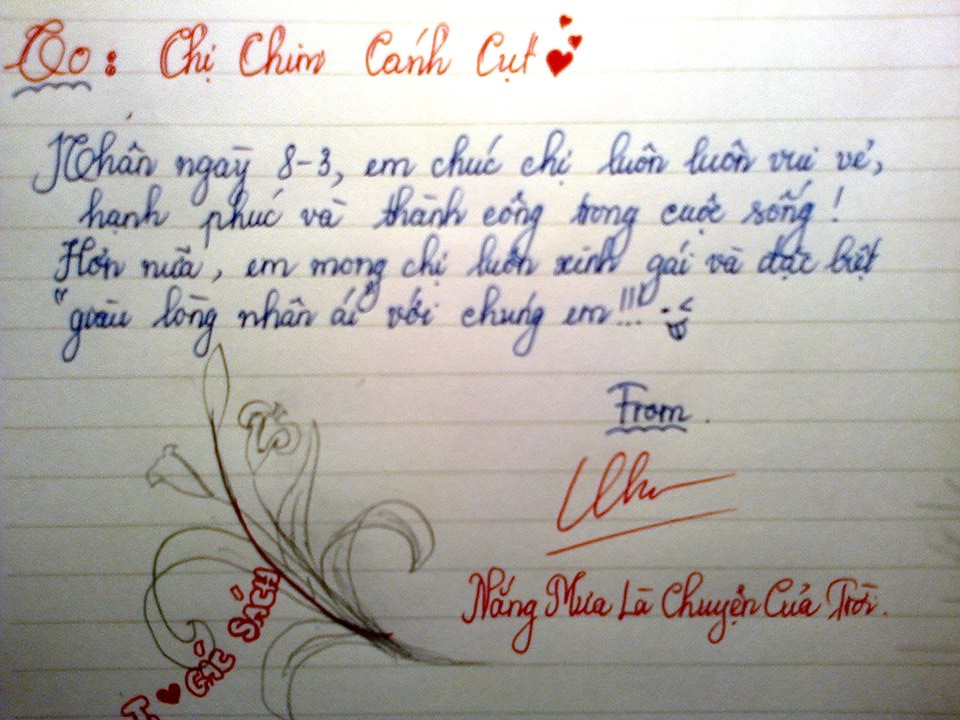 To: Chị Chim Cánh Cụt
Nhân ngaỳ 8-3, em chúc chị luôn luôn vui vẻ,
hạnh phúc và thành công trong cuộc sống!
Hơn nữa, em mong chị luôn xinh gái và đặc biệt
"giàu lòng nhân ái" với chúng em!!!
From.
Nắng Mưa Là Chuyện Của Trời.
I ♥ GÁC SÁCH